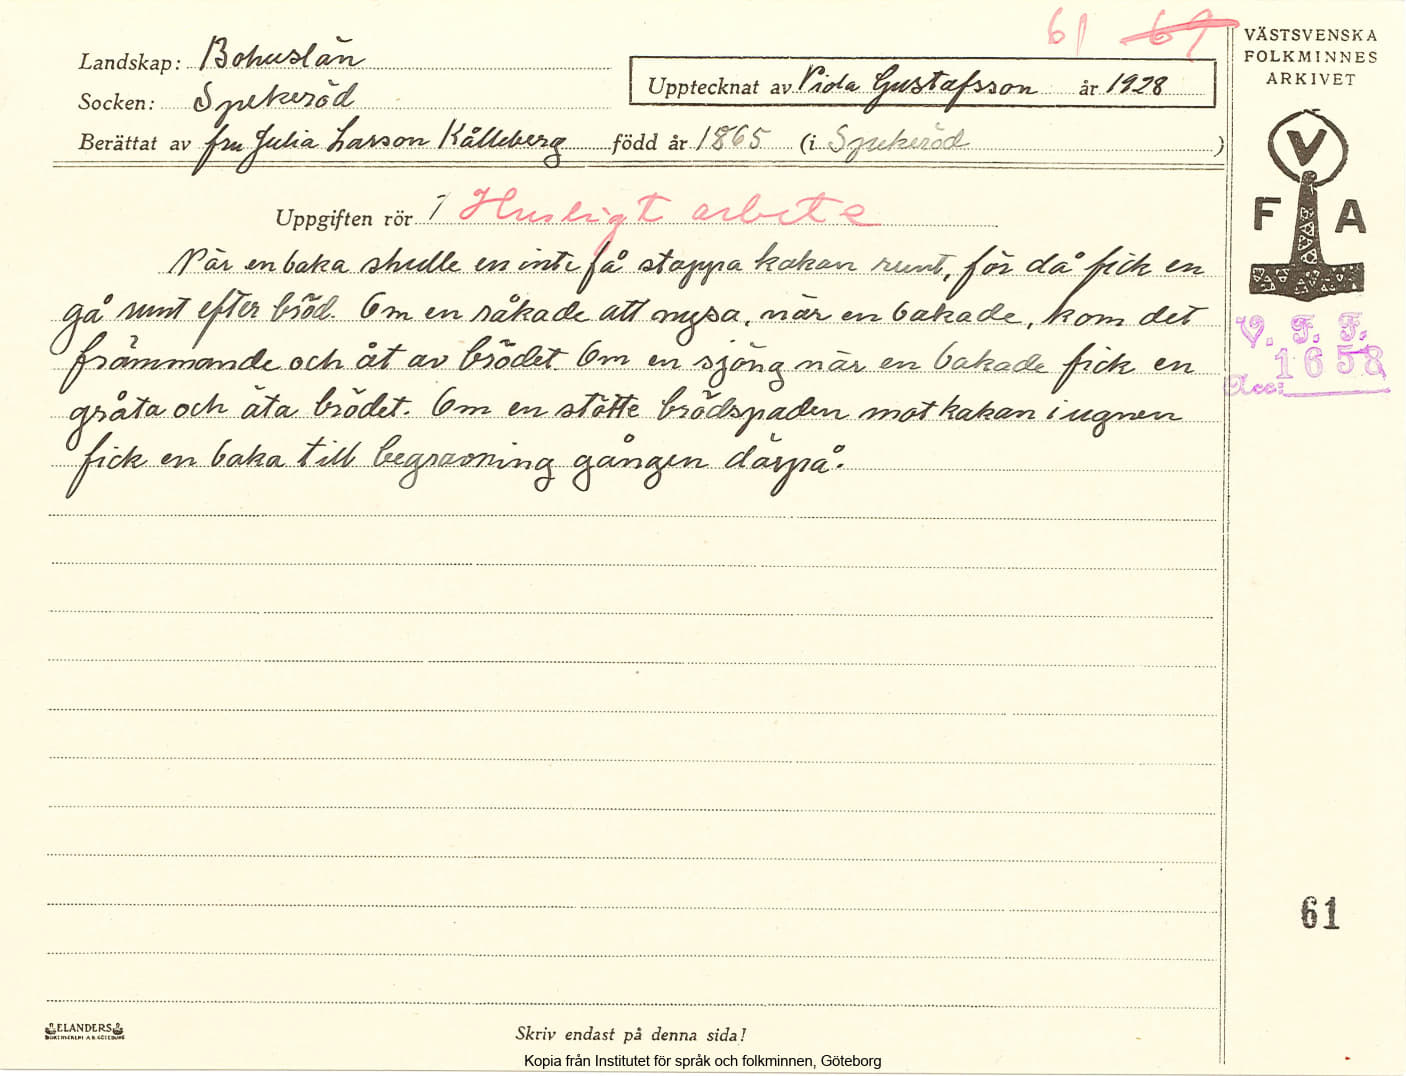 61 69
VÄSTSVENSKA
FOLKMINNES
ARKIVET
Landskap: Bohuslän
Upptecknat av Viola Gustafsson år 1928
Socken: Spekeröd
Berättat av fru Julia Larson Kålleberg född år 1865 (i Spekeröd )
V
F A
Uppgiften rör Husligt arbete
När en baka skulle en inte få stoppa kakan runt, för då fick en
gå runt efter bröd. Om en råkade att nysa, när en bakade, kom det
främmande och åt av brödet. Om en sjöng när en bakade fick en
gråta och äta brödet. Om en stötte brödspaden mot kakan i ugnen
fick en baka till begravning gången därpå.
V. F. F.
1658
Acc:
61
ELANDERS
BOKTRYCKERI A.B. GÖTEBORG
Skriv endast på denna sida!
Kopia från Institutet för språk och folkminnen, Göteborg